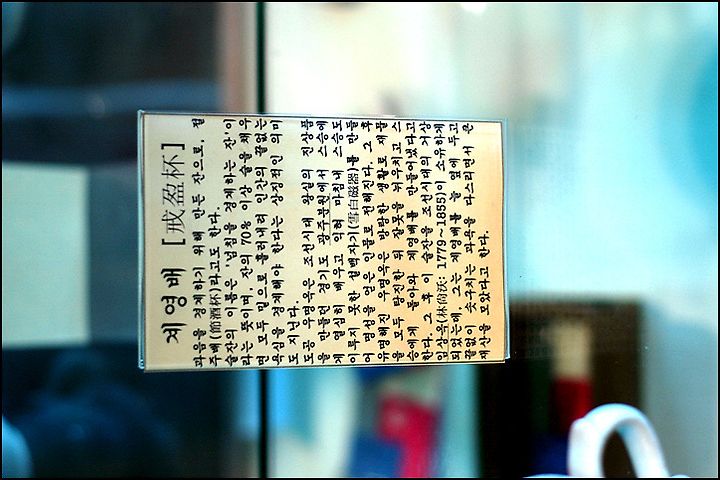 계영배 [戒盈杯]
과음을 경계하기 위해 만든 잔으로, 절
주배(節酒杯)라고도 한다.
술잔의 이름은 '넘침을 경계하는 잔'이
라는 뜻이며, 잔의 70% 이상 술을 채우
면 모두 밑으로 흘러내려 인간의 끝없는
욕심을 경계해야 한다는 상징적인 의미
도 지닌다.
도공 우명옥은 조선시대 왕실의 진상품
을 만들던 경기도 광주분원에서 스승에
게 열심히 배우고 익혀 마침내 스승도
이루지 못한 설백자기(雪白磁器)를 만들
어 명성을 얻은 인물로 전해진다. 그 후
유명해진 우명옥은 방탕한 생활로 재물
을 모두 탕진한 뒤 잘못을 뉘우치고 스
승에게 돌아와 계영배를 만들어냈다고
한다. 그 후 이 술잔을 조선시대의 거상
임상옥(林尙沃: 1779~1855)이 소유하게
되었는데, 그는 계영배를 늘 옆에 두고
끝없이 솟구치는 과욕을 다스리면서 큰
재산을 모았다고 한다.